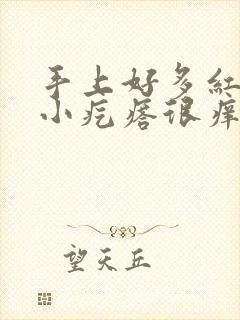 手上好多红
小疙瘩很痒
望天丘